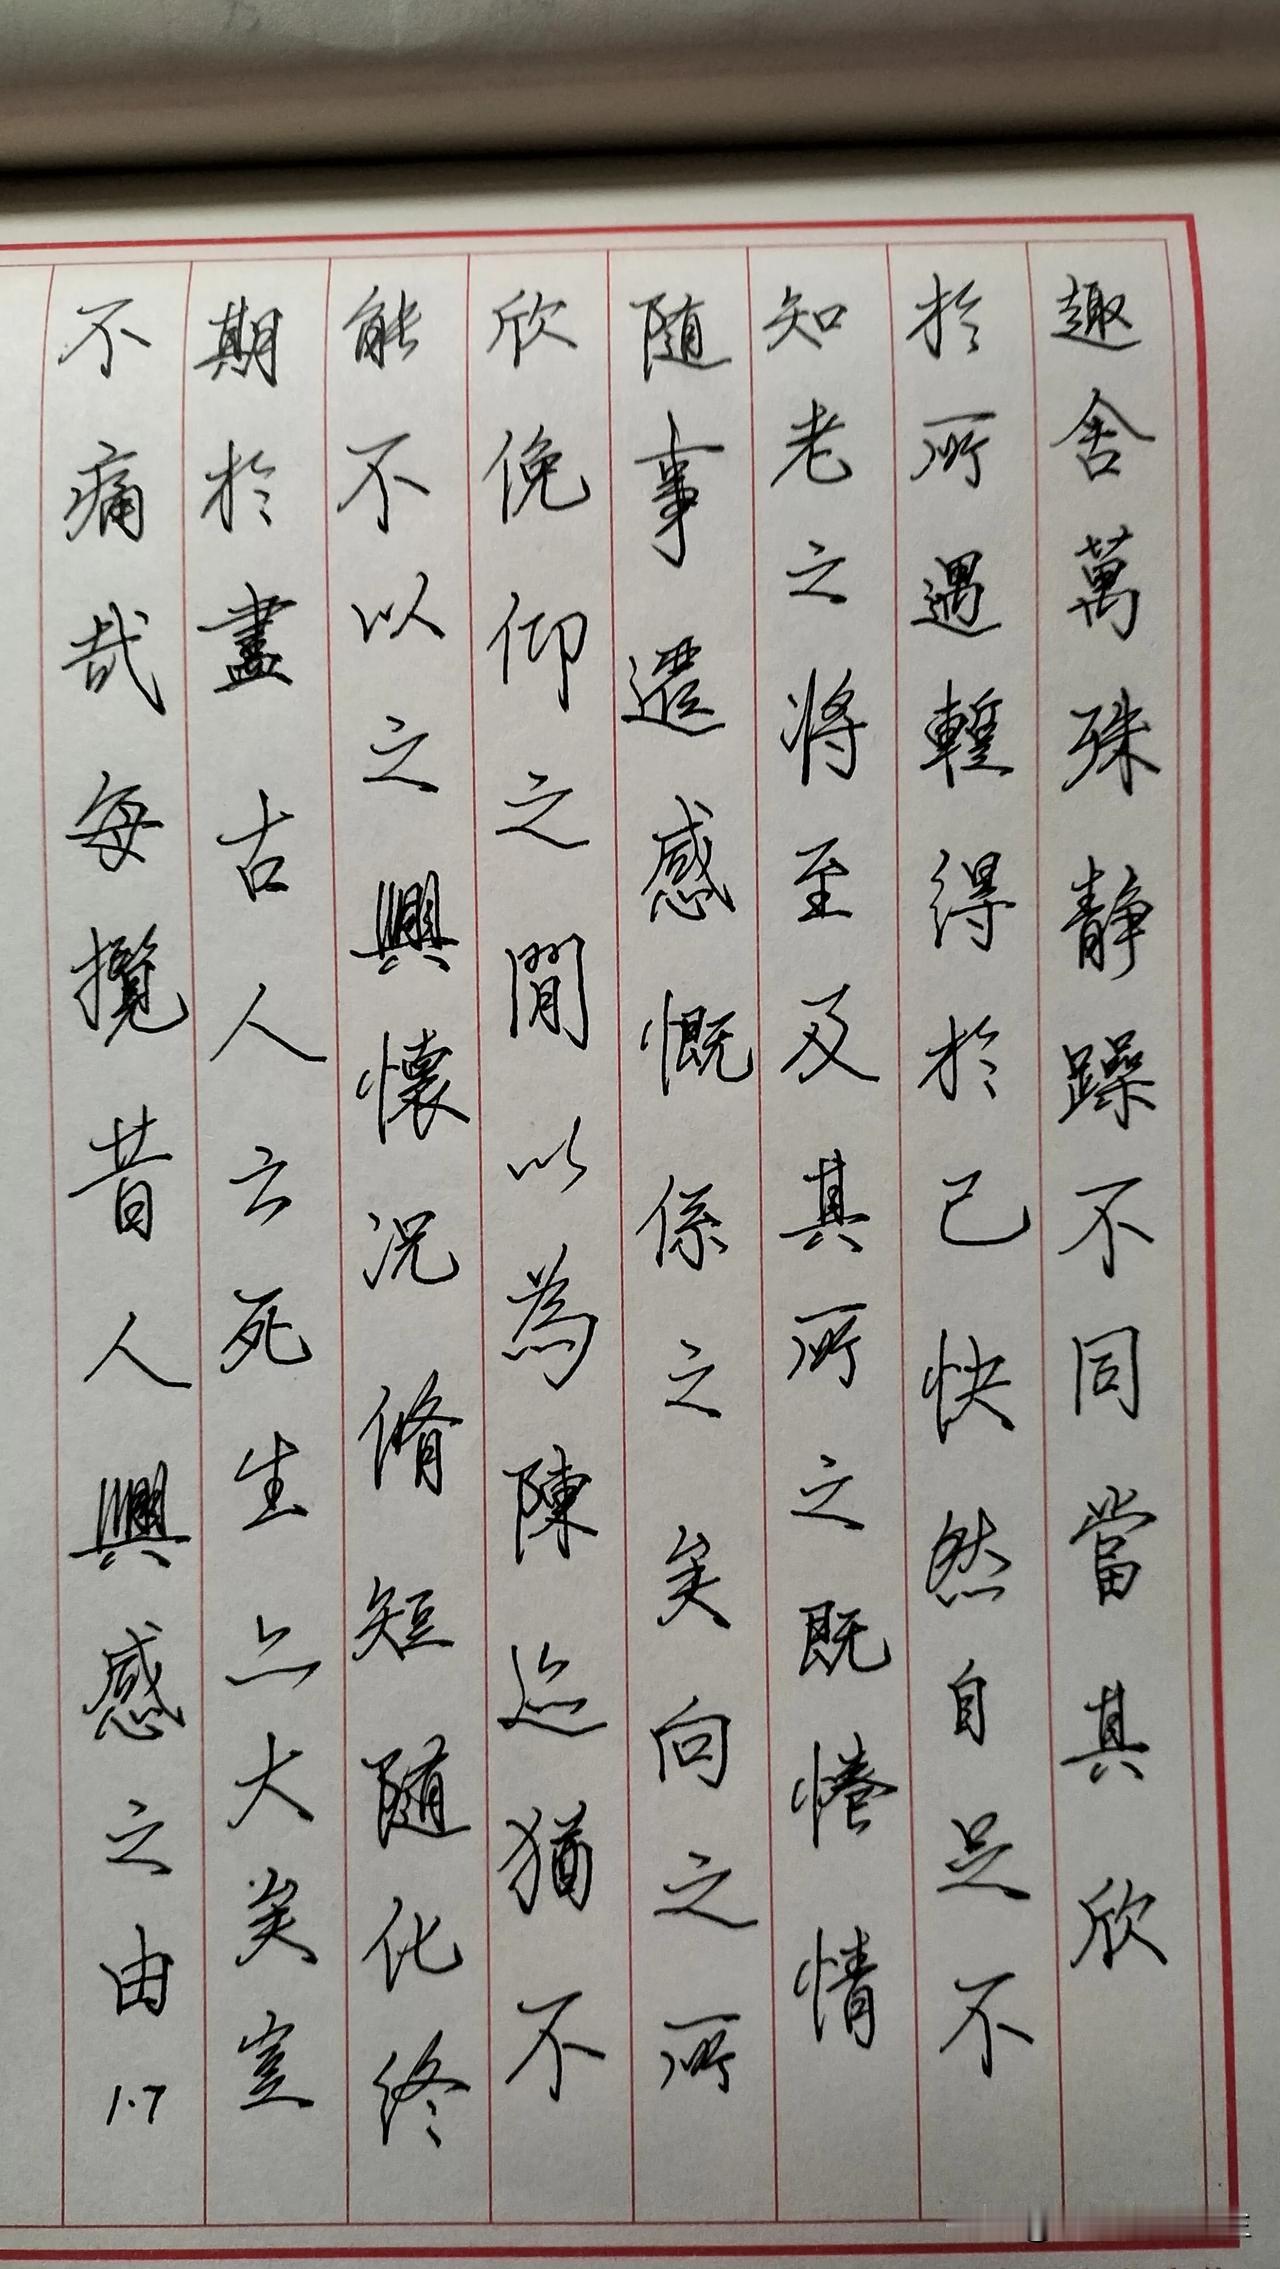 趣舍萬殊静躁不同當其欣
於所遇蹔得於己快然自足不
知老之将至及其所之既惓情
随事遷感慨係之矣向之所
欣俛仰之間以為陳迹猶不
能不以之興懷况脩短随化終
期於盡古人云死生亦大矣豈
不痛哉每攬昔人興感之由1.7